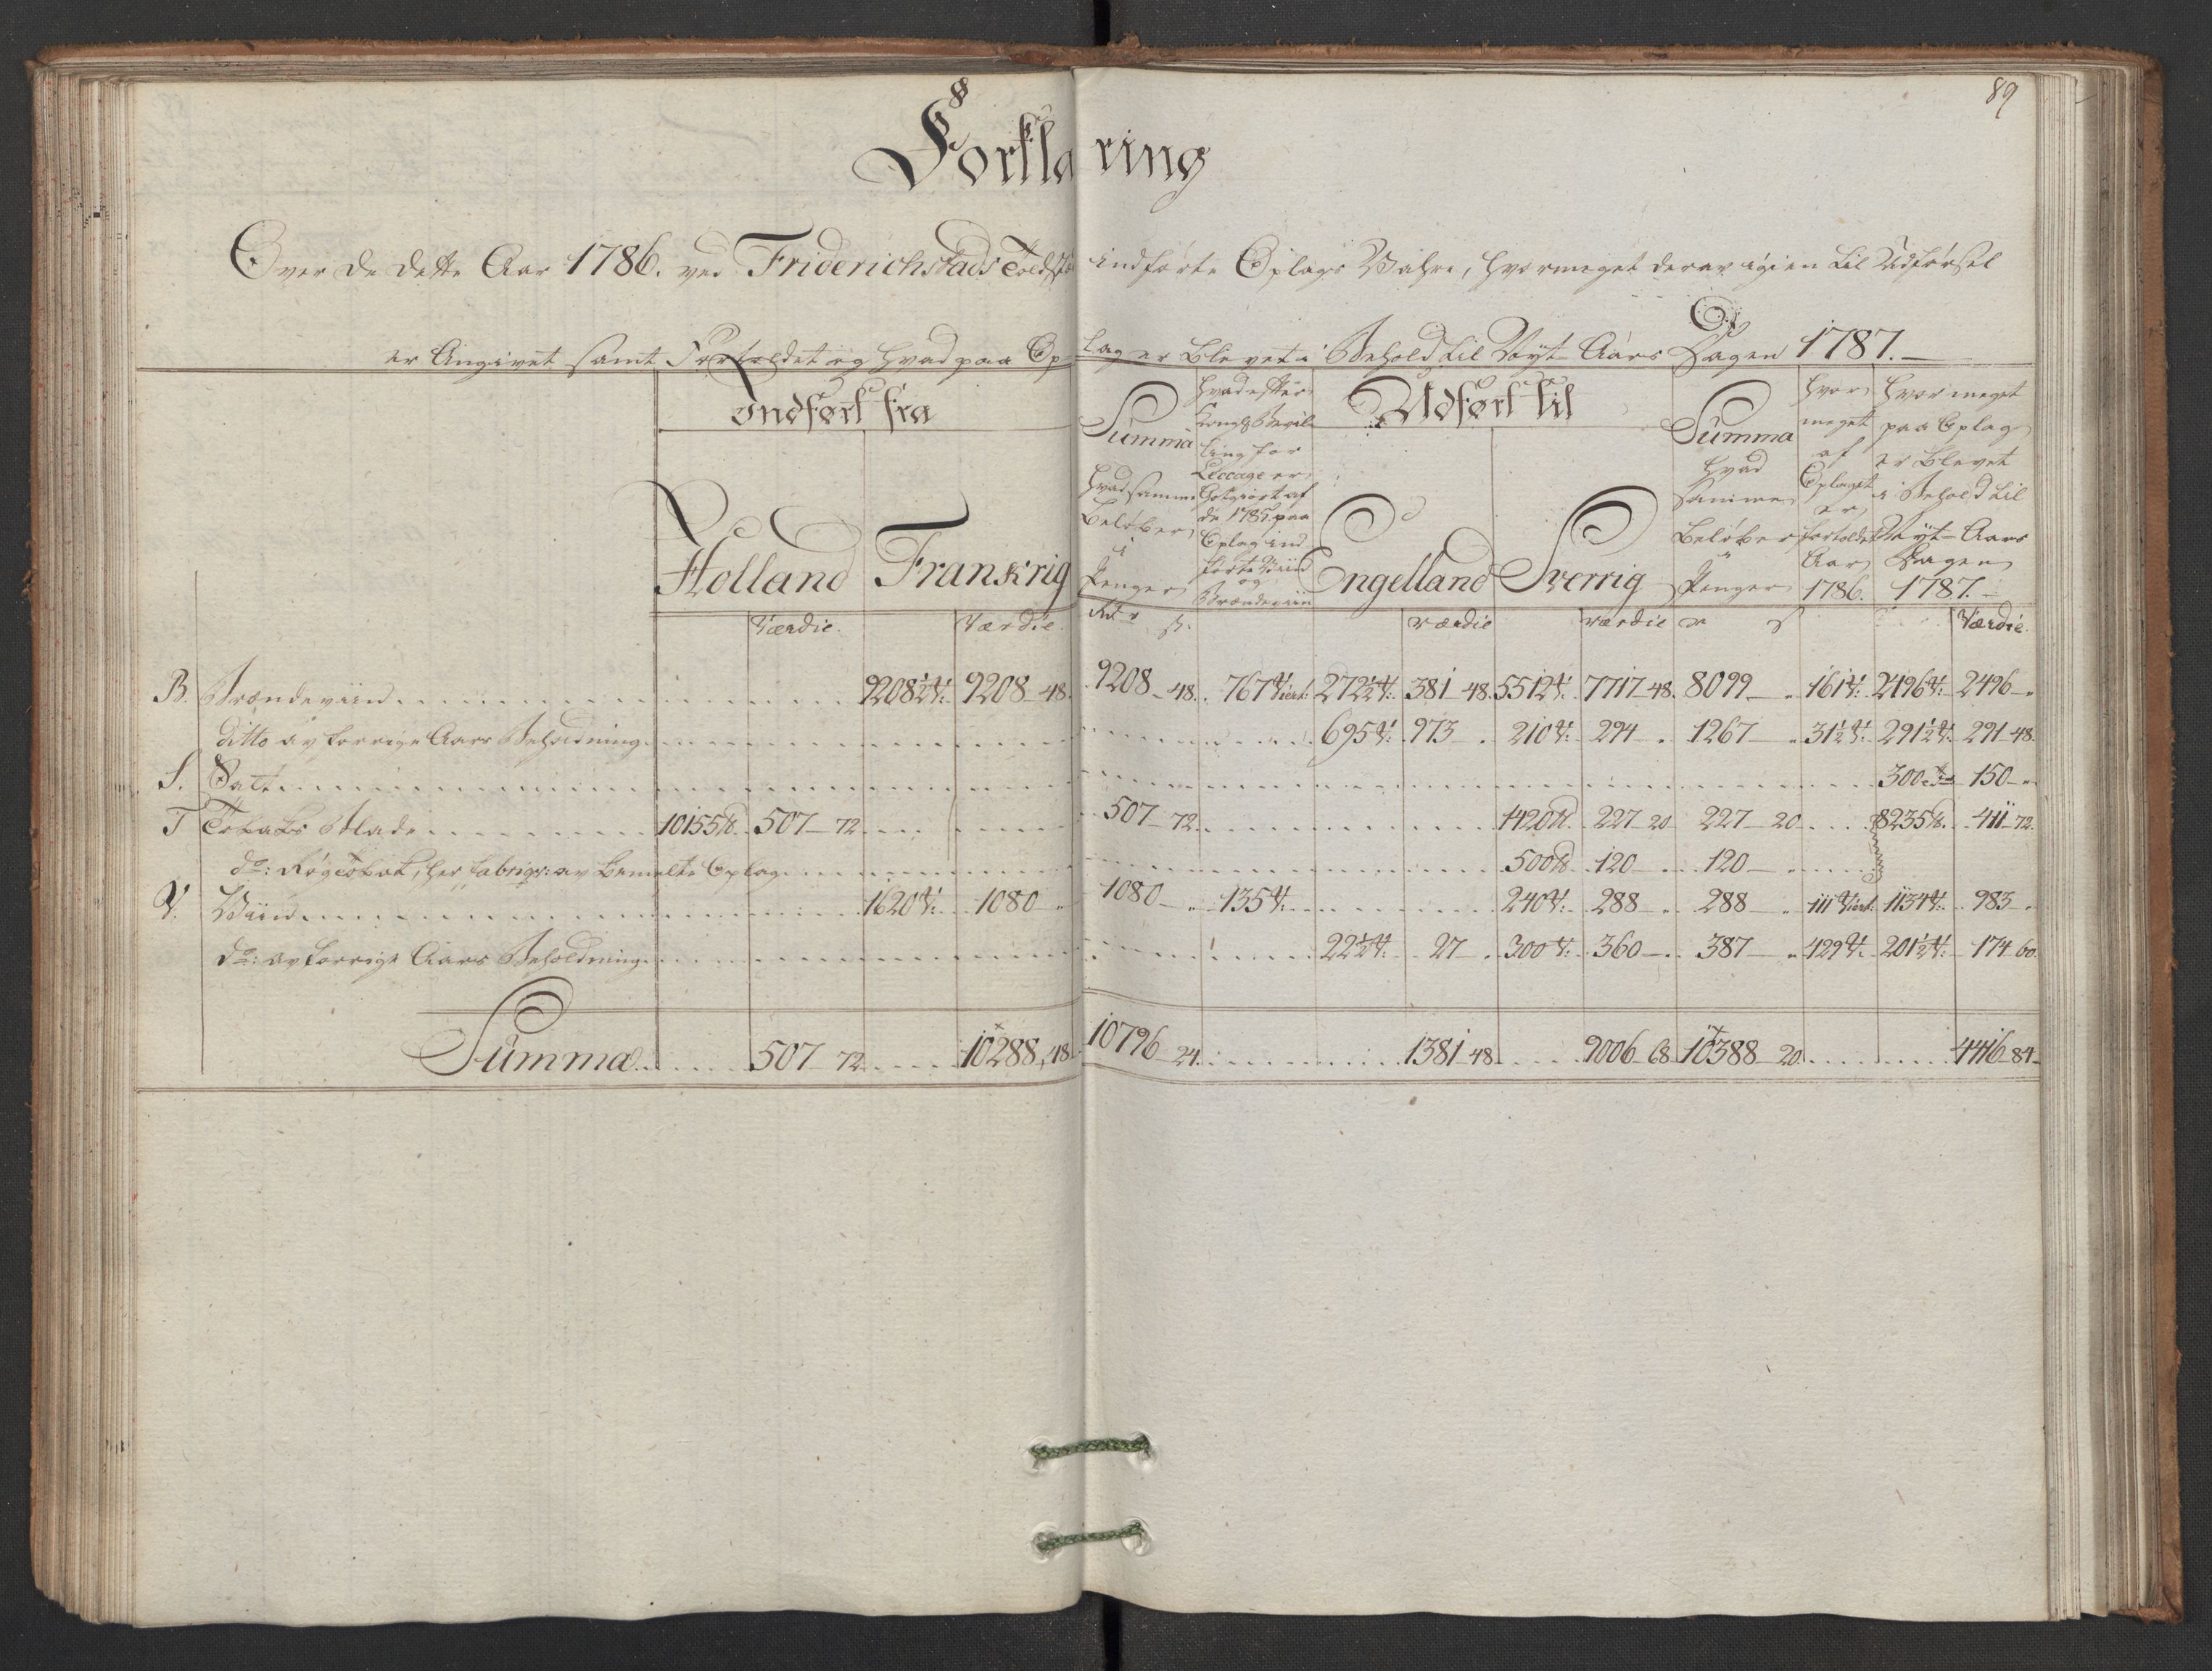 89
Forklaring
Over de dette Aar 1786. ved Friderichstads Toldsted indførte Oplags Vahre, hvormeget deraf igien til Udførsel
er Angivet samt Fortoldet og hvad paa Oplag er blevet i Behold til Nyt Aars Dagen 1787.
Indført fra
Holland
Værdie.
Frankrig
Værdie.
Summa
hvad samme
beløber
i
Penger
Rd s.
hvad efter
Kongl. Bevil
ling for
Leccage er
Gotgiort af
de 1785 paa
Oplag ind
førte Viin
og
Brændeviin
Udført til
Engelland
værdie
Sverrig
værdie
Summa
hvad
samme
beløber
i
Penger
hvor
meget
af
Oplaget
er
fortoldet
Aar
1786.
hvor meget
paa Oplag
er blevet
i Behold til
Nyt-Aars
Dagen
1787.
Værdie.
B. Brændeviin 9208½ V: 9208-48. 9208-48. 767 Viert: 272½ V: 381-48. 5512 V: 7717-48. 8099-. 161 V: 2496 V: 2496-.
ditto av forrige Aars Beholdning 695 V: 973-. 210 V: 294-. 1267-. 31½ V: 291½ V: 291-48.
S. Salt 300 150-.
T Tobaks Blade 10155 ℔. 507-72. 507-72. 1420 ℔. 227-20 227-20 8235 ℔. 411-72.
do: Røgtobak, her fabriqr: av bemelte Oplag 500 ℔ 120- 120-.
V. Viin 1620 V: 1080-. 1080-. 135 V: 240 V: 288-. 288-. 111 Viert: 1134 V: 983-.
do: av forrige Aars Beholdning 22½ V: 27-. 300 V: 360-. 387-. 429 V: 201½ V: 174-60.
Summa 507-72 10288-48. 10796-24. 1381-48. 9006-68 10388-20. 4416-84